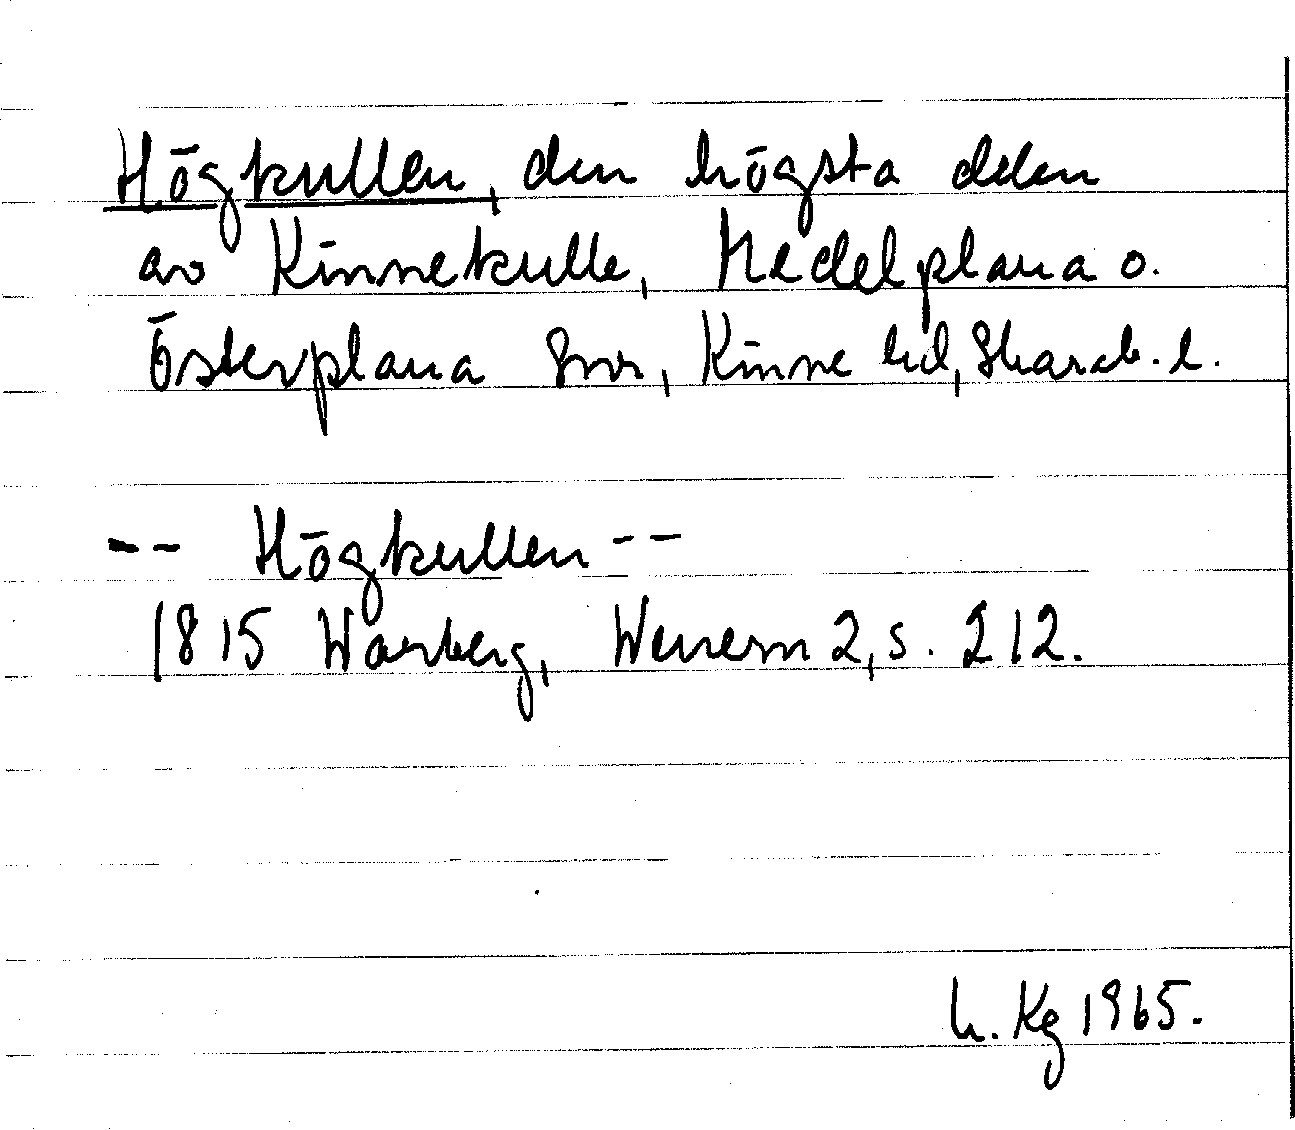 Högkullen, den högsta delen
av Kinnekulle, Medelplana o.
Österplana snr, Kinne hd, Skarab. l.
-- Högkullen --
1815 Warberg, Wenern 2, s. 212.
h. Kg 1965.